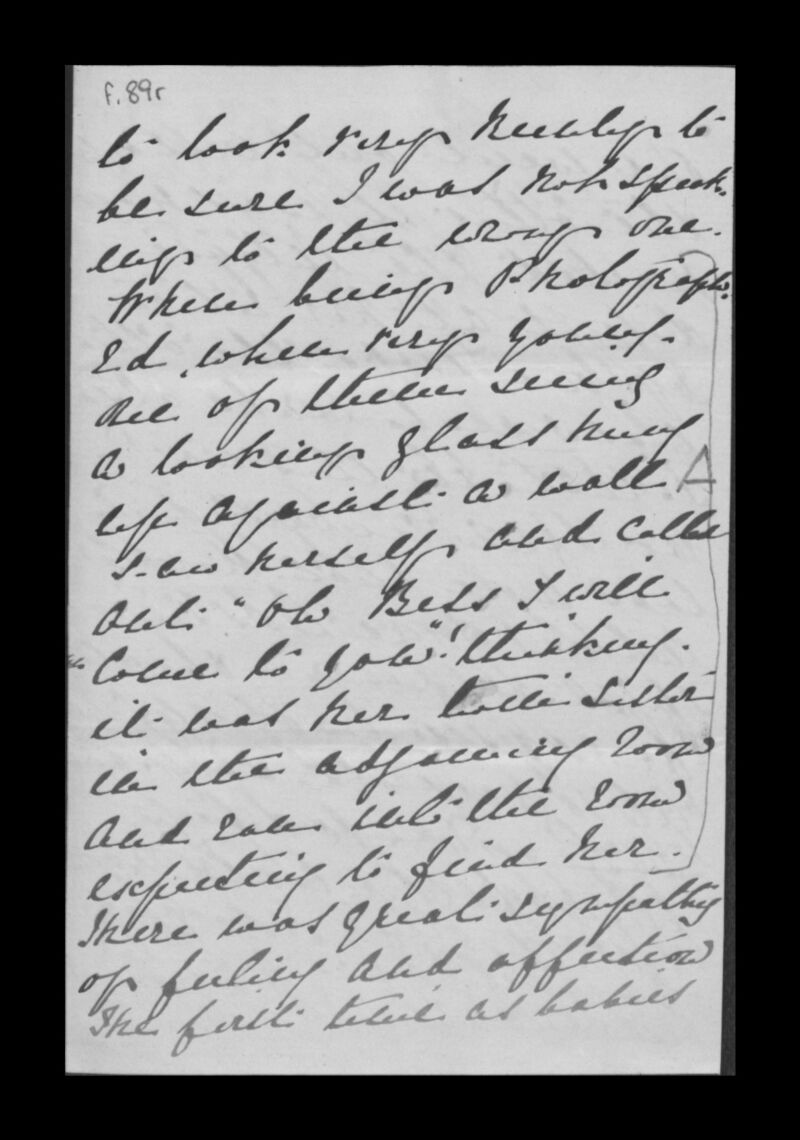 f. 89r
to look very keenly to
be sure I was not speak-
ing to the wrong one.
When being Photograph-
Ed, when very young.
one of them seeing
a looking glass hung
up against a wall A
saw herself and called
out. "Oh Bess I will
"Come to you"! thinking.
it was her twin sister
in the adjoining room
and ran into the room
expecting to find her.
There was great sympathy
of feeling and affection
The first time as babies